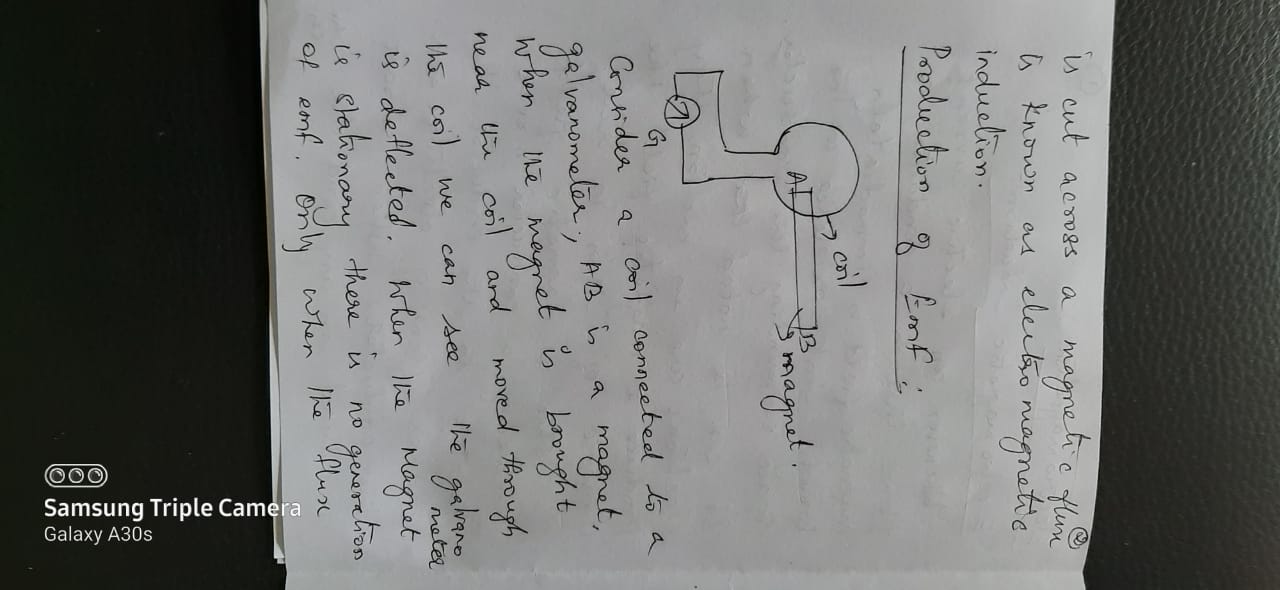 ②
is cut across a magnetic flux
is known as electro magnetic
induction.
Production of Emf :
coil
A
B
magnet.
G
Consider a coil connected to a
galvanometer, AB is a magnet,
When the magnet is brought
near the coil and moved through
the coil we can see the galvano
meter
is deflected. When the Magnet
is stationary there is no generation
of emf. Only when the flux
Samsung Triple Camera
Galaxy A30s